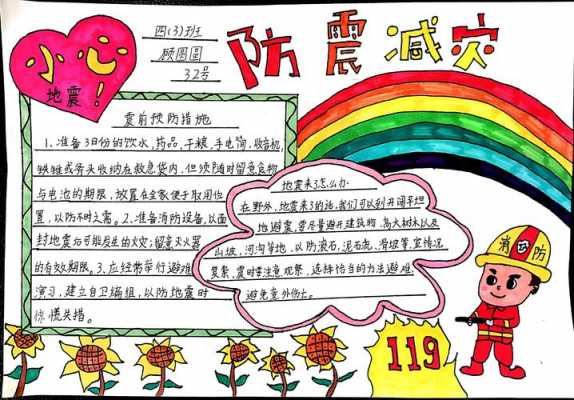 小心
地震!
四(3)班
顾图圆
32号
防震减灾
震前预防措施
1.准备3日份的饮水,药品,干粮,手电筒,收音机,
铁锥或旁头收纳在救急货内,但须随时留意食物
与电池的期限,放置在全家便于取用位
置,以防不时之需。2.准备消防设备,以面
封地震后可能发生的火灾;留意灭火器
的有效期限。3.应经常举行避难
演习,建立自卫编组,以防地震时
惊慌失措。
地震来了怎么办
在野外,地震来了的话,我们可以到开阔平坦
地避震,要尽量避开建筑物,高大树木以及
山坡,河沟等地,以防滚石,泥石流,滑坡等,室情况
复紧,震时要注意观察,选择恰当的方法避难,
避免意外伤亡。
消防
119